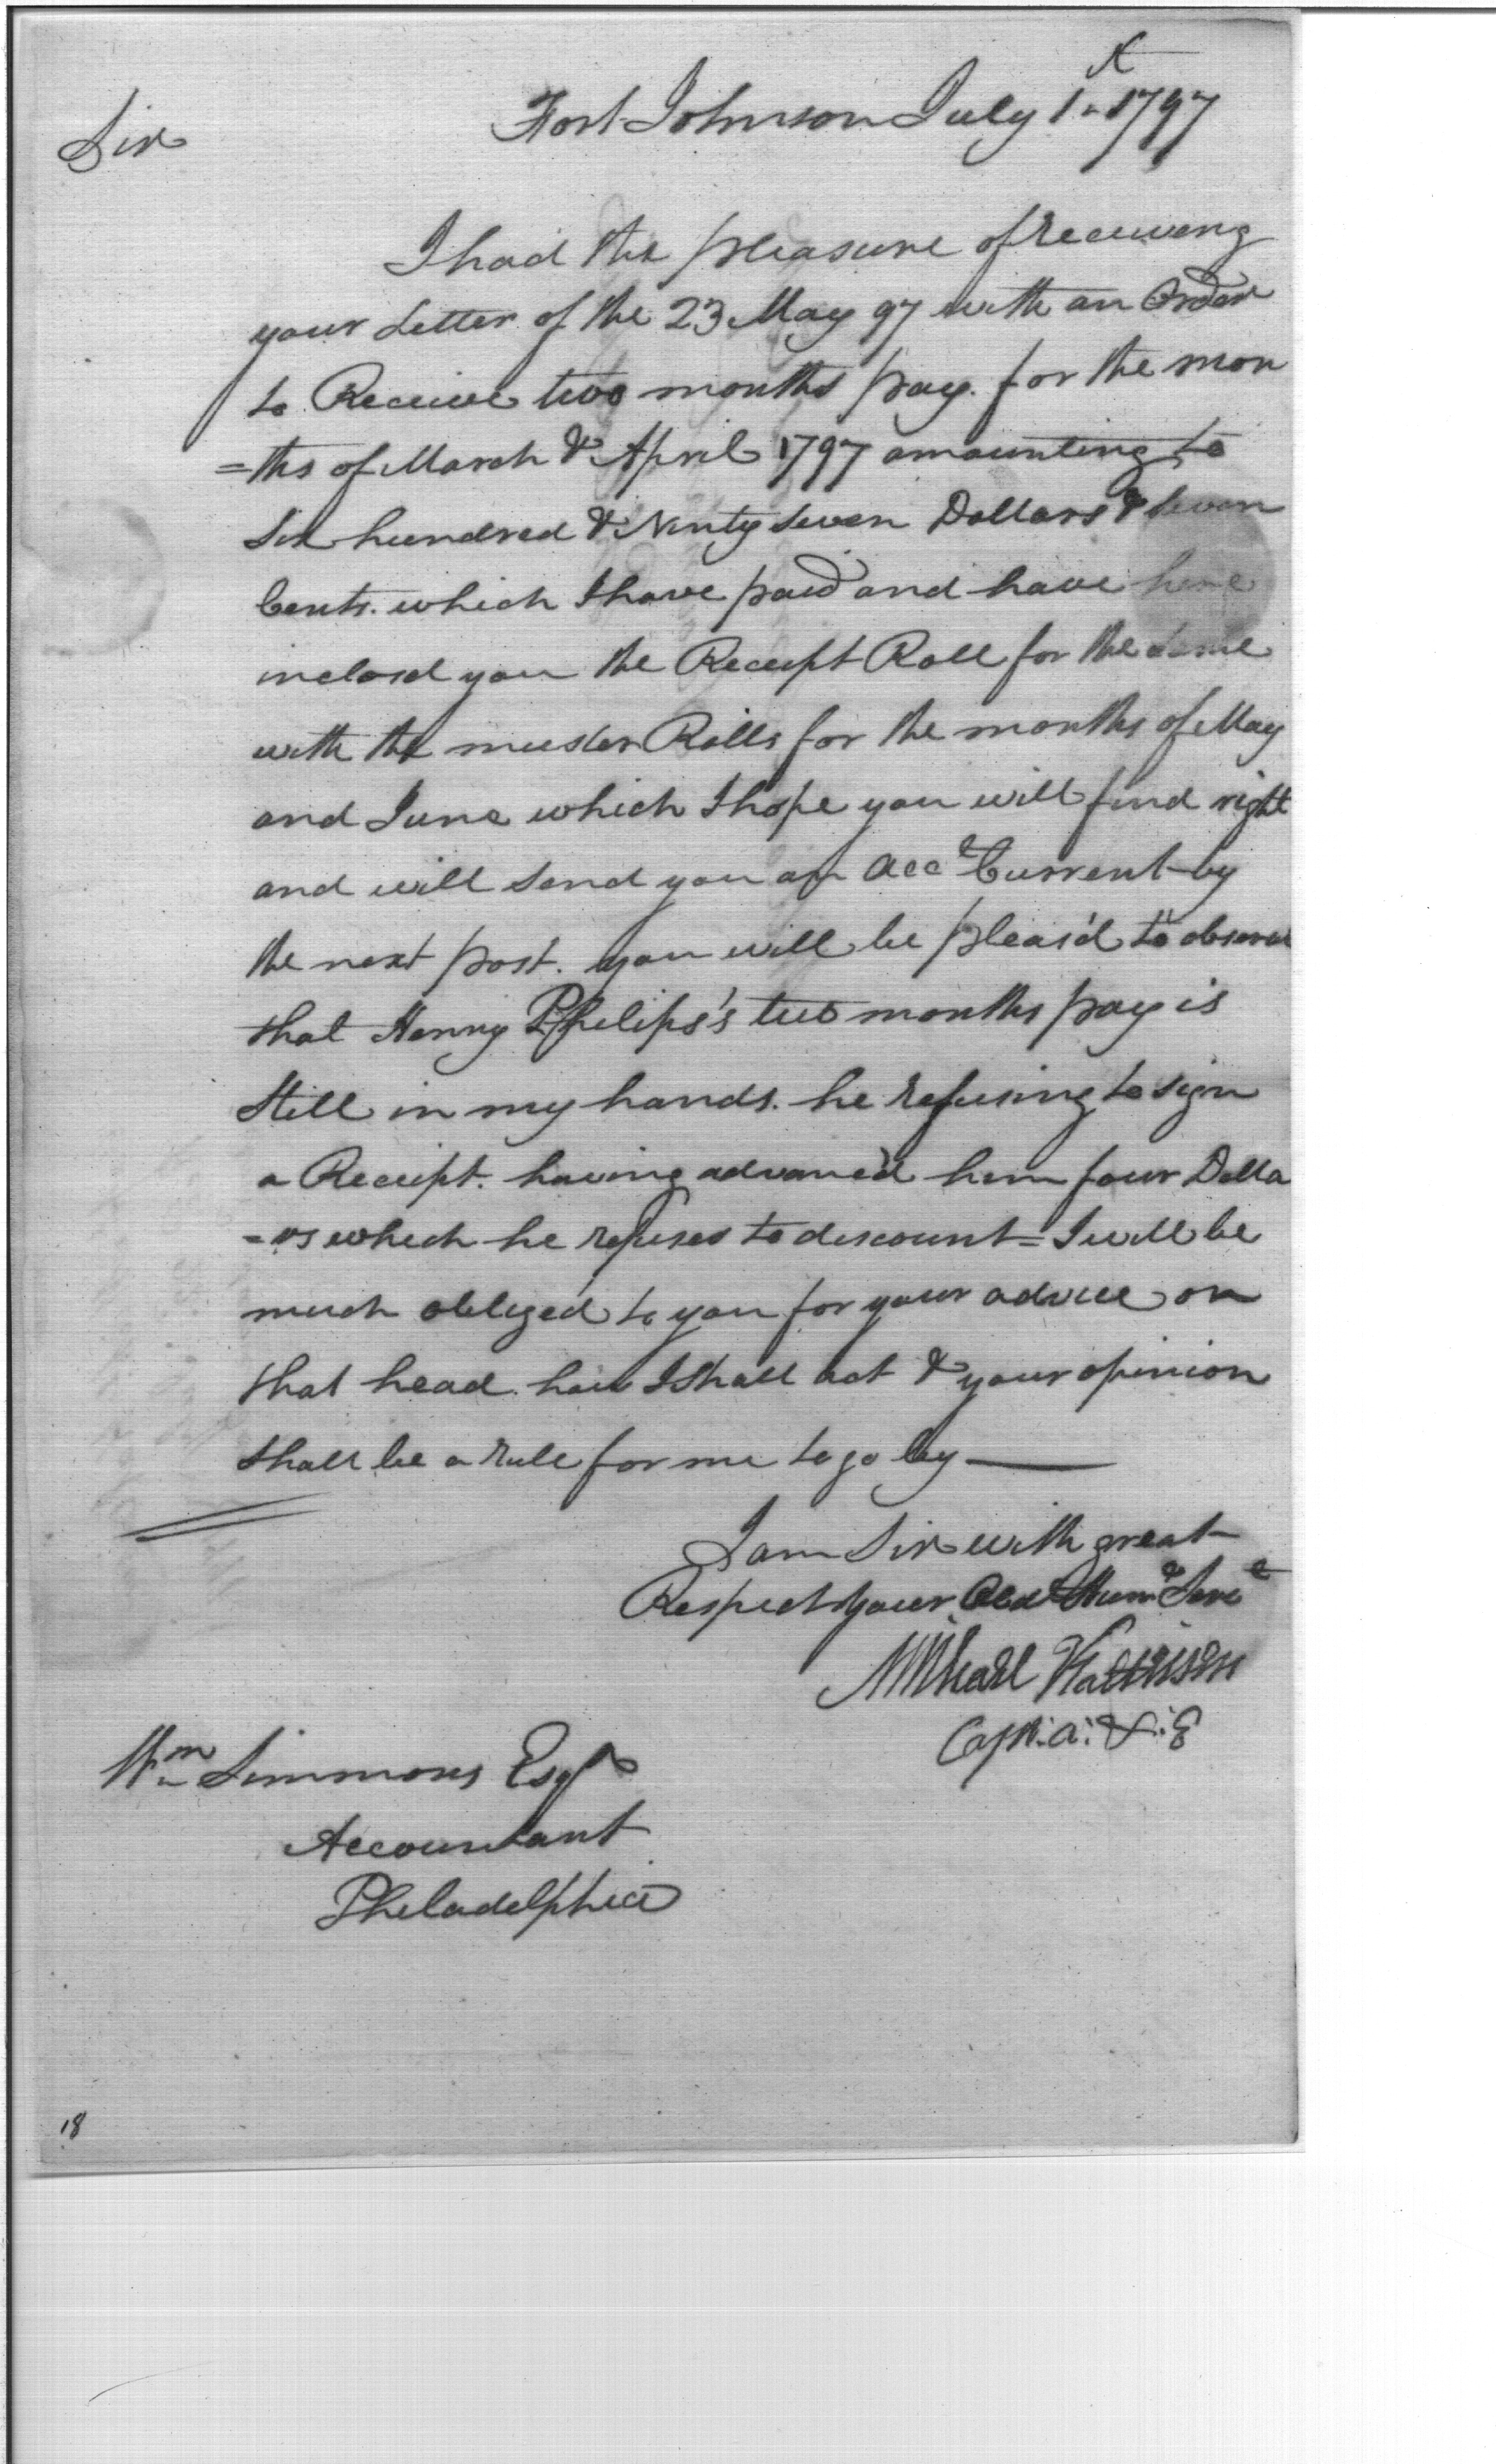 Fort Johnson July 1st 1797
Sir
I had the pleasure of Receiving
your Letter of the 23 May 97 with an Order
to Receive two months pay. for the mon
=ths of March & April 1797 amounting to
Six hundred & Ninty Seven Dollars & Seven
Cents. which I have paid and have here
inclosd you the Receipt Roll for the Same
with the muster Rolls for the months of May
and June which I hope you will find right
and will Send you an Acct Current by
the next post. you will be pleas'd to observe
that Henry Philips's two months pay is
Still in my hands. he Refusing to Sign
a Receipt. having advanc'd him four Dolla
=rs which he refuses to discount = I will be
much obliged to you for your advice on
that head. how I Shall act & your opinion
Shall be a Rule for me to go by
I am Sir with great
Respect your Obdt Humle Servt
Michael Kalteisen
Capt. A: & : E
Wm Simmons Esqr
Accountant
Philadelphia
18